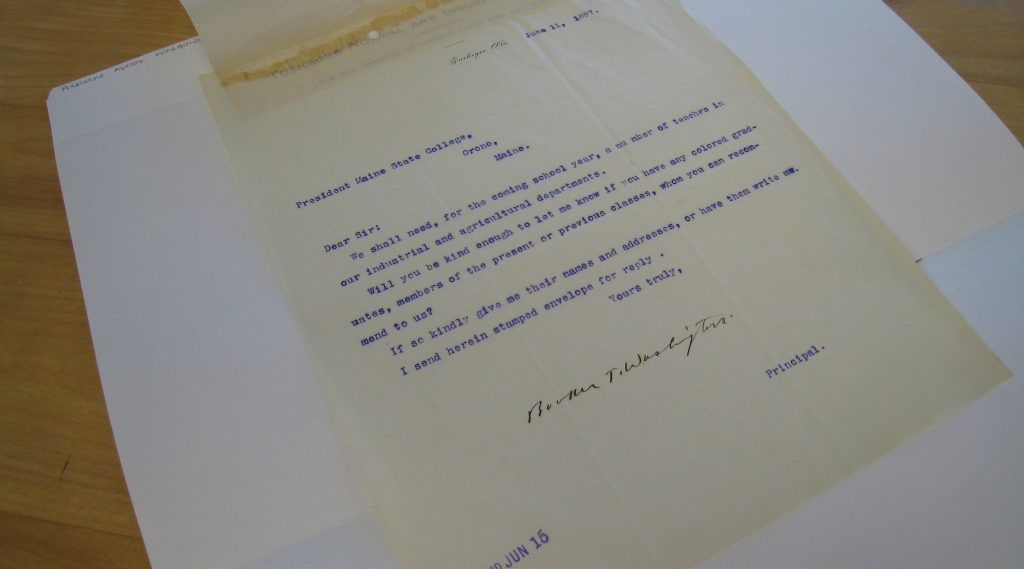 TUSKEGEE NORMAL AND INDUSTRIAL
Tuskegee, Ala
June 11, 1897.
President Maine State College,
Orono,
Maine.
Dear Sir:
We shall need, for the coming school year, a nu mber of teachrs in
our industrial and agricultural departments.
Will you be kind enough to let me know if you have any colored grad-
uates, members of the present or previous classes, whom you can recom-
mend to us?
If so kindly give me their names and addresses, or have them write me.
I send herein stamped envelope for reply .
Yours truly,
Booker T. Washington.
Principal.
JUN 15